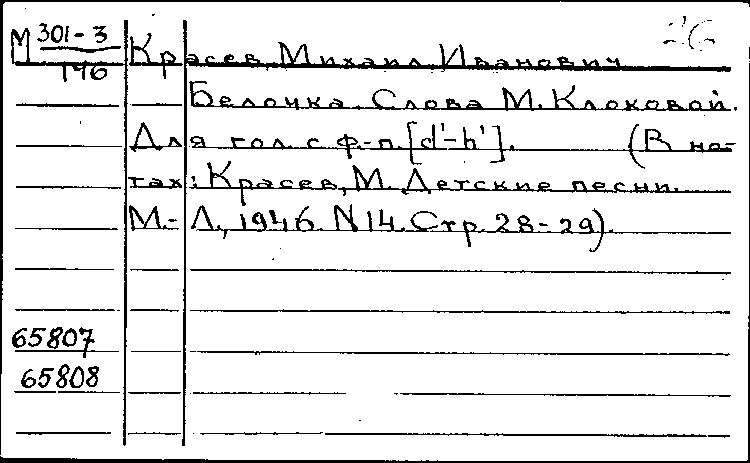 М 301-3
146
Красев, Михаил Иванович
Белочка. Слова М. Клоковой.
Для гол. с ф.-п. [d'-h']. (В но-
тах: Красев, М. Детские песни.
М.-Л., 1946. N14. Стр. 28-29).
65807
65808